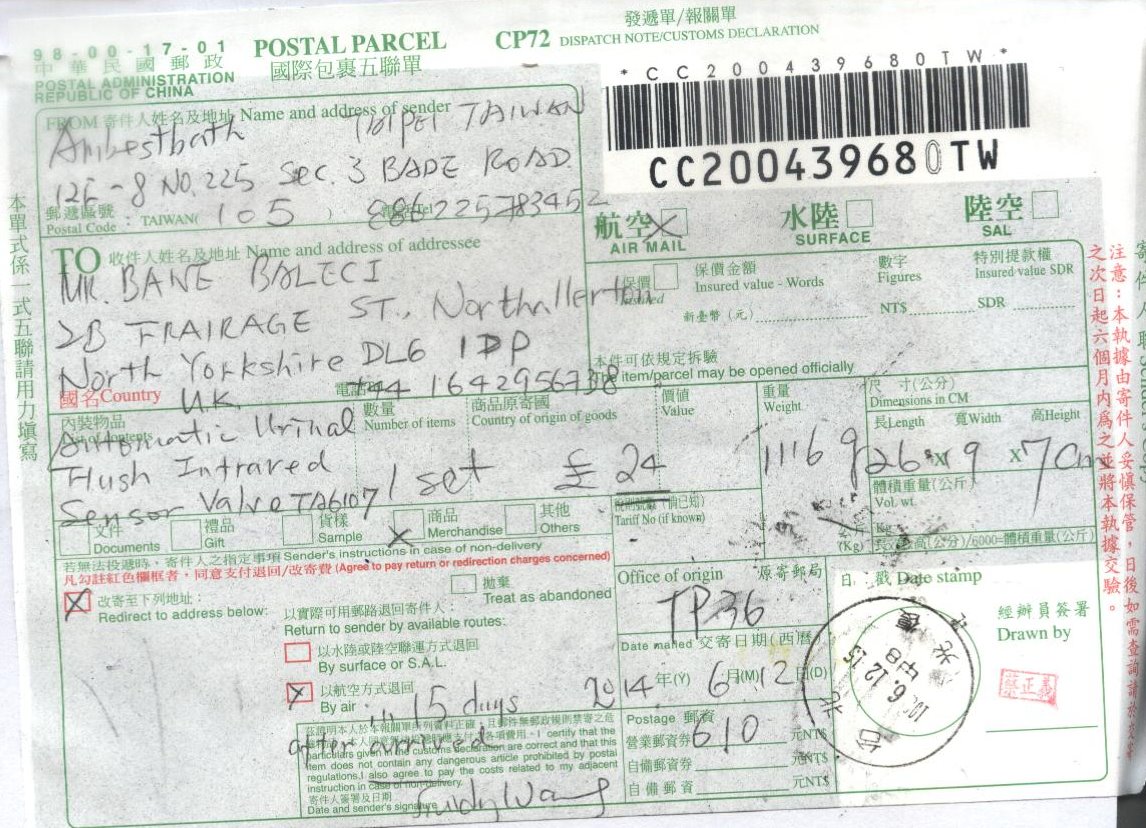 98-00-17-01
中華民國郵政
POSTAL ADMINISTRATION
REPUBLIC OF CHINA
POSTAL PARCEL
國際包裹五聯單
CP72
發遞單/報關單
DISPATCH NOTE/CUSTOMS DECLARATION
*CC200439680TW*
CC200439680TW
FROM 寄件人姓名及地址 Name and address of sender
Ambestbath TAIPEI TAIWAN
126-8 NO.225 Sec.3 BADE ROAD.
郵遞區號
Postal Code : TAIWAN( 105 ) Tel 886225783452
航空 X
AIR MAIL
水陸
SURFACE
陸空
SAL
TO 收件人姓名及地址 Name and address of addressee
MR. BANE BALECI
2B FRAIRAGE ST., Northallerton
North Yorkshire DL6 1DP
國名Country U.K. 電話Tel +44 1642956738
保價
Insured
保價金額
Insured value - Words
數字
Figures
特別提款權
Insured value SDR
新臺幣 (元)
NT$
SDR
本件可依規定拆驗
The item/parcel may be opened officially
內裝物品
List of contents
數量
Number of items
商品原寄國
Country of origin of goods
價值
Value
重量
Weight
尺 寸(公分)
Dimensions in CM
長Length 寬Width 高Height
Automatic Urinal
Flush Infrared
Sensor Valve TA6107
1 set
£ 24
1116 g
26 x 19 x 7 cm
體積重量(公斤)
Vol. wt.
Kg
(Kg) 長x寬x高(公分)/6000=體積重量(公斤)
稅則號數 (倘已知)
Tariff No (if known)
文件
Documents
禮品
Gift
貨樣
Sample
X 商品
Merchandise
其他
Others
若無法投遞時，寄件人之指定事項 Sender's instructions in case of non-delivery
凡勾註紅色欄框者，同意支付退回/改寄費 (Agree to pay return or redirection charges concerned)
X 改寄至下列地址：
Redirect to address below:
拋棄
Treat as abandoned
以實際可用郵路退回寄件人：
Return to sender by available routes:
以水陸或陸空聯運方式退回
By surface or S.A.L.
X 以航空方式退回
By air
in 15 days
after arrived
茲證明本人於本報關單所列資料正確，且郵件無郵政規則禁寄之危
I certify that the
particulars given in the customs declaration are correct and that this
item does not contain any dangerous article prohibited by postal
regulations.I also agree to pay the costs related to my adjacent
instruction in case of non-delivery.
寄件人簽署及日期
Date and sender's signature
Judy Wang
Office of origin 原寄郵局
TP36
Date mailed 交寄日期(西曆)
2014年(Y) 6月(M) 12日(D)
Postage 郵資
營業郵資券 610 元NT$
自備郵資券 元NT$
自備郵資 元NT$
日 戳 Date stamp
103. 6.12.15
台 北
經辦員簽署
Drawn by
蔡正義
本單式係一式五聯請用力填寫
注意：本執據由寄件人妥慎保管，日後如需查詢請於交寄
之次日起六個月內為之並將本執據交驗。